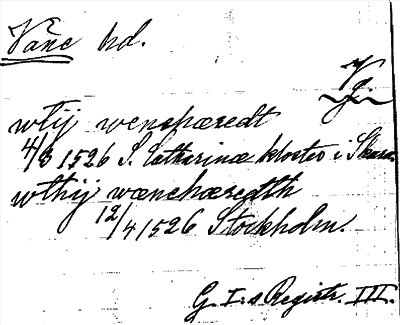 Våne hd.
Vg.
wtij wenehæredt
4/3 1526 S. Catharinæ kloster i Skara.
wthij wænehæredth
12/4 1526 Stockholm.
G. I:s Registr. III.